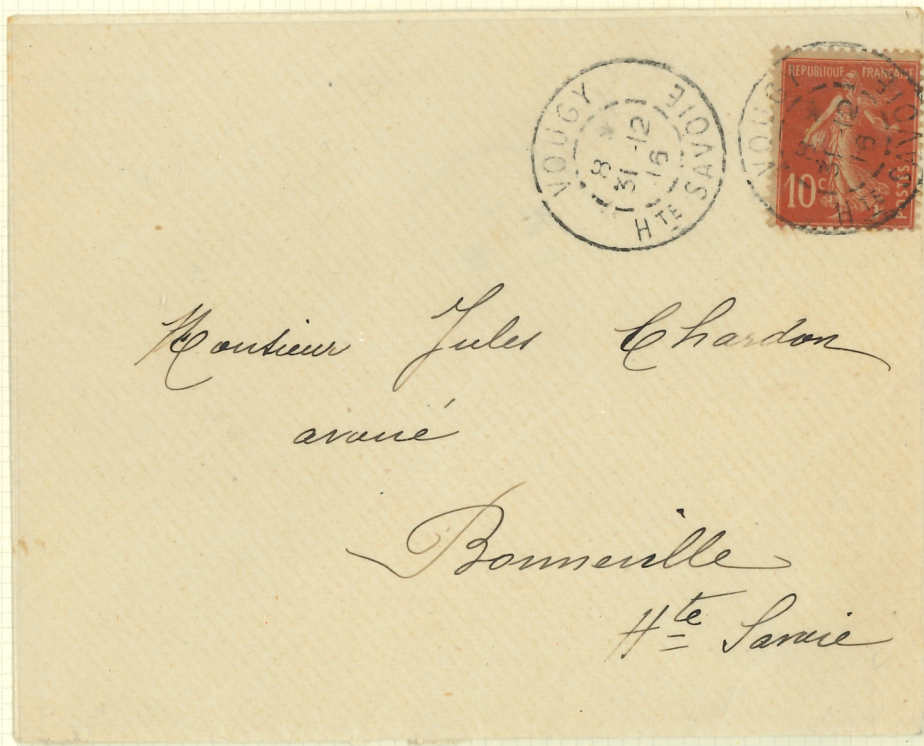 VOUGY
Hᵀᴱ SAVOIE
8
31-12
16
VOUGY
Hᵀᴱ SAVOIE
8
31-12
16
REPUBLIQUE FRANÇAISE
10c
POSTES
Monsieur Jules Chardon
avoué
Bonneville
Hte Savoie